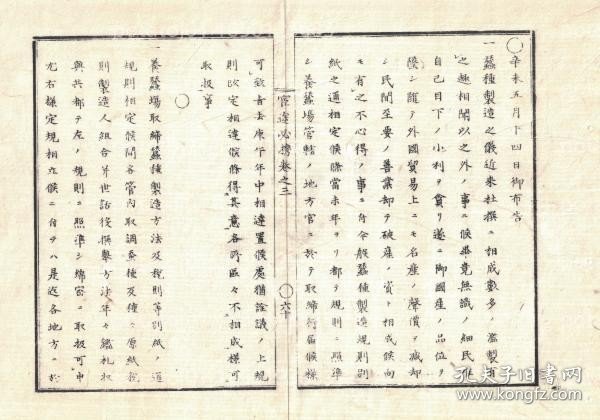 ○
辛未五月廿四日御布告
一蚕種製造之儀近来杜撰ニ相成数多ノ濫製有
之趣相聞以之外ノ事ニ候畢竟無識ノ細民
自己目下ノ小利ヲ貪リ遂ニ御國産ノ品位ヲ
降シ随テ外國貿易上ニモ名産ノ聲價ヲ減却
シ民間至要ノ善業却テ破産ノ資ト相成候向
モ有之不心得ノ事ニ付今般蚕種製造規則別
紙之通相定候條當未年ヨリ都テ規則ニ照準
シ養蚕場管轄ノ地方官ニ於テ取締行届候様
官途必携巻之三
○六十
可致旨去庚午年中相達置候處猶詮議ノ上規
則改定相達候條得其意各所區々不相成様可
取扱事
○
一養蚕場取締蚕種製造方法及税則等別紙ノ通
規則相定候間各管内取調蚕種及種々原紙我
則製造人組合并世話役撰擧方法年々鑑札
與共都テ左ノ規則ニ照準シ綿密ニ取扱可申
尤右様定規相立候ニ付テハ是迄各地方ニ於
孔夫子旧书网